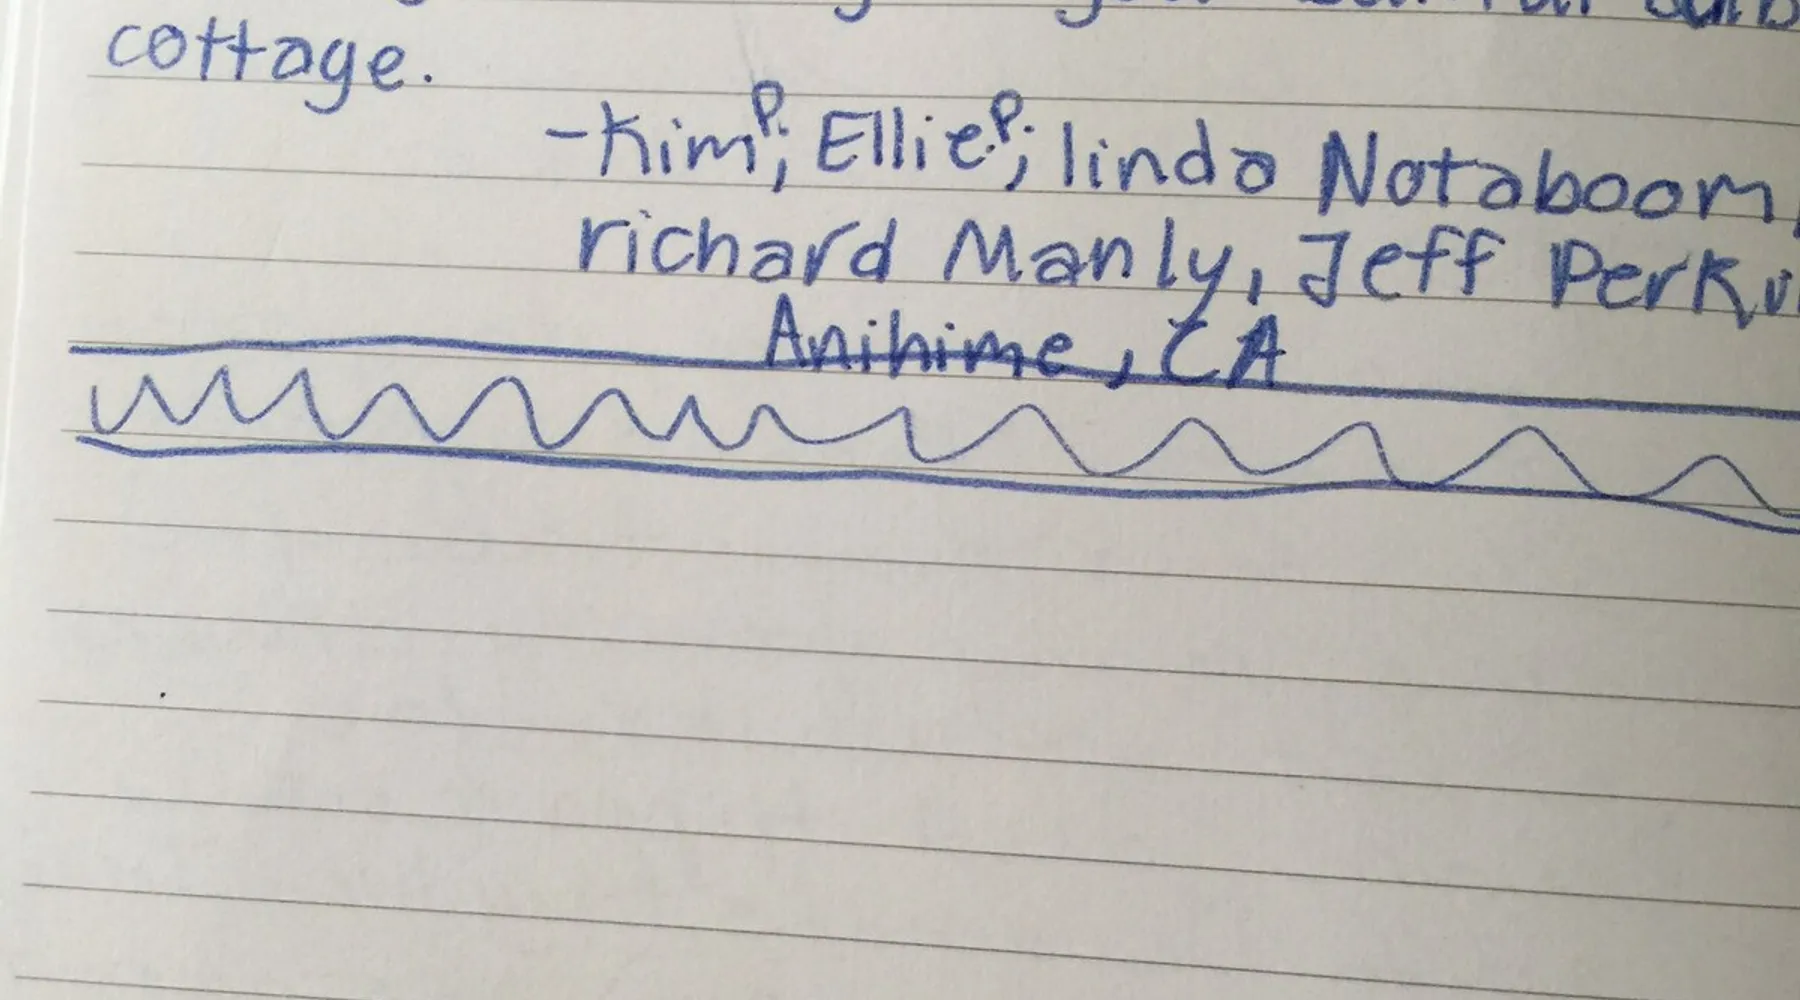 cottage.
-Kim P., Ellie P., linda Notaboom,
richard Manly, Jeff
Anihime, CA